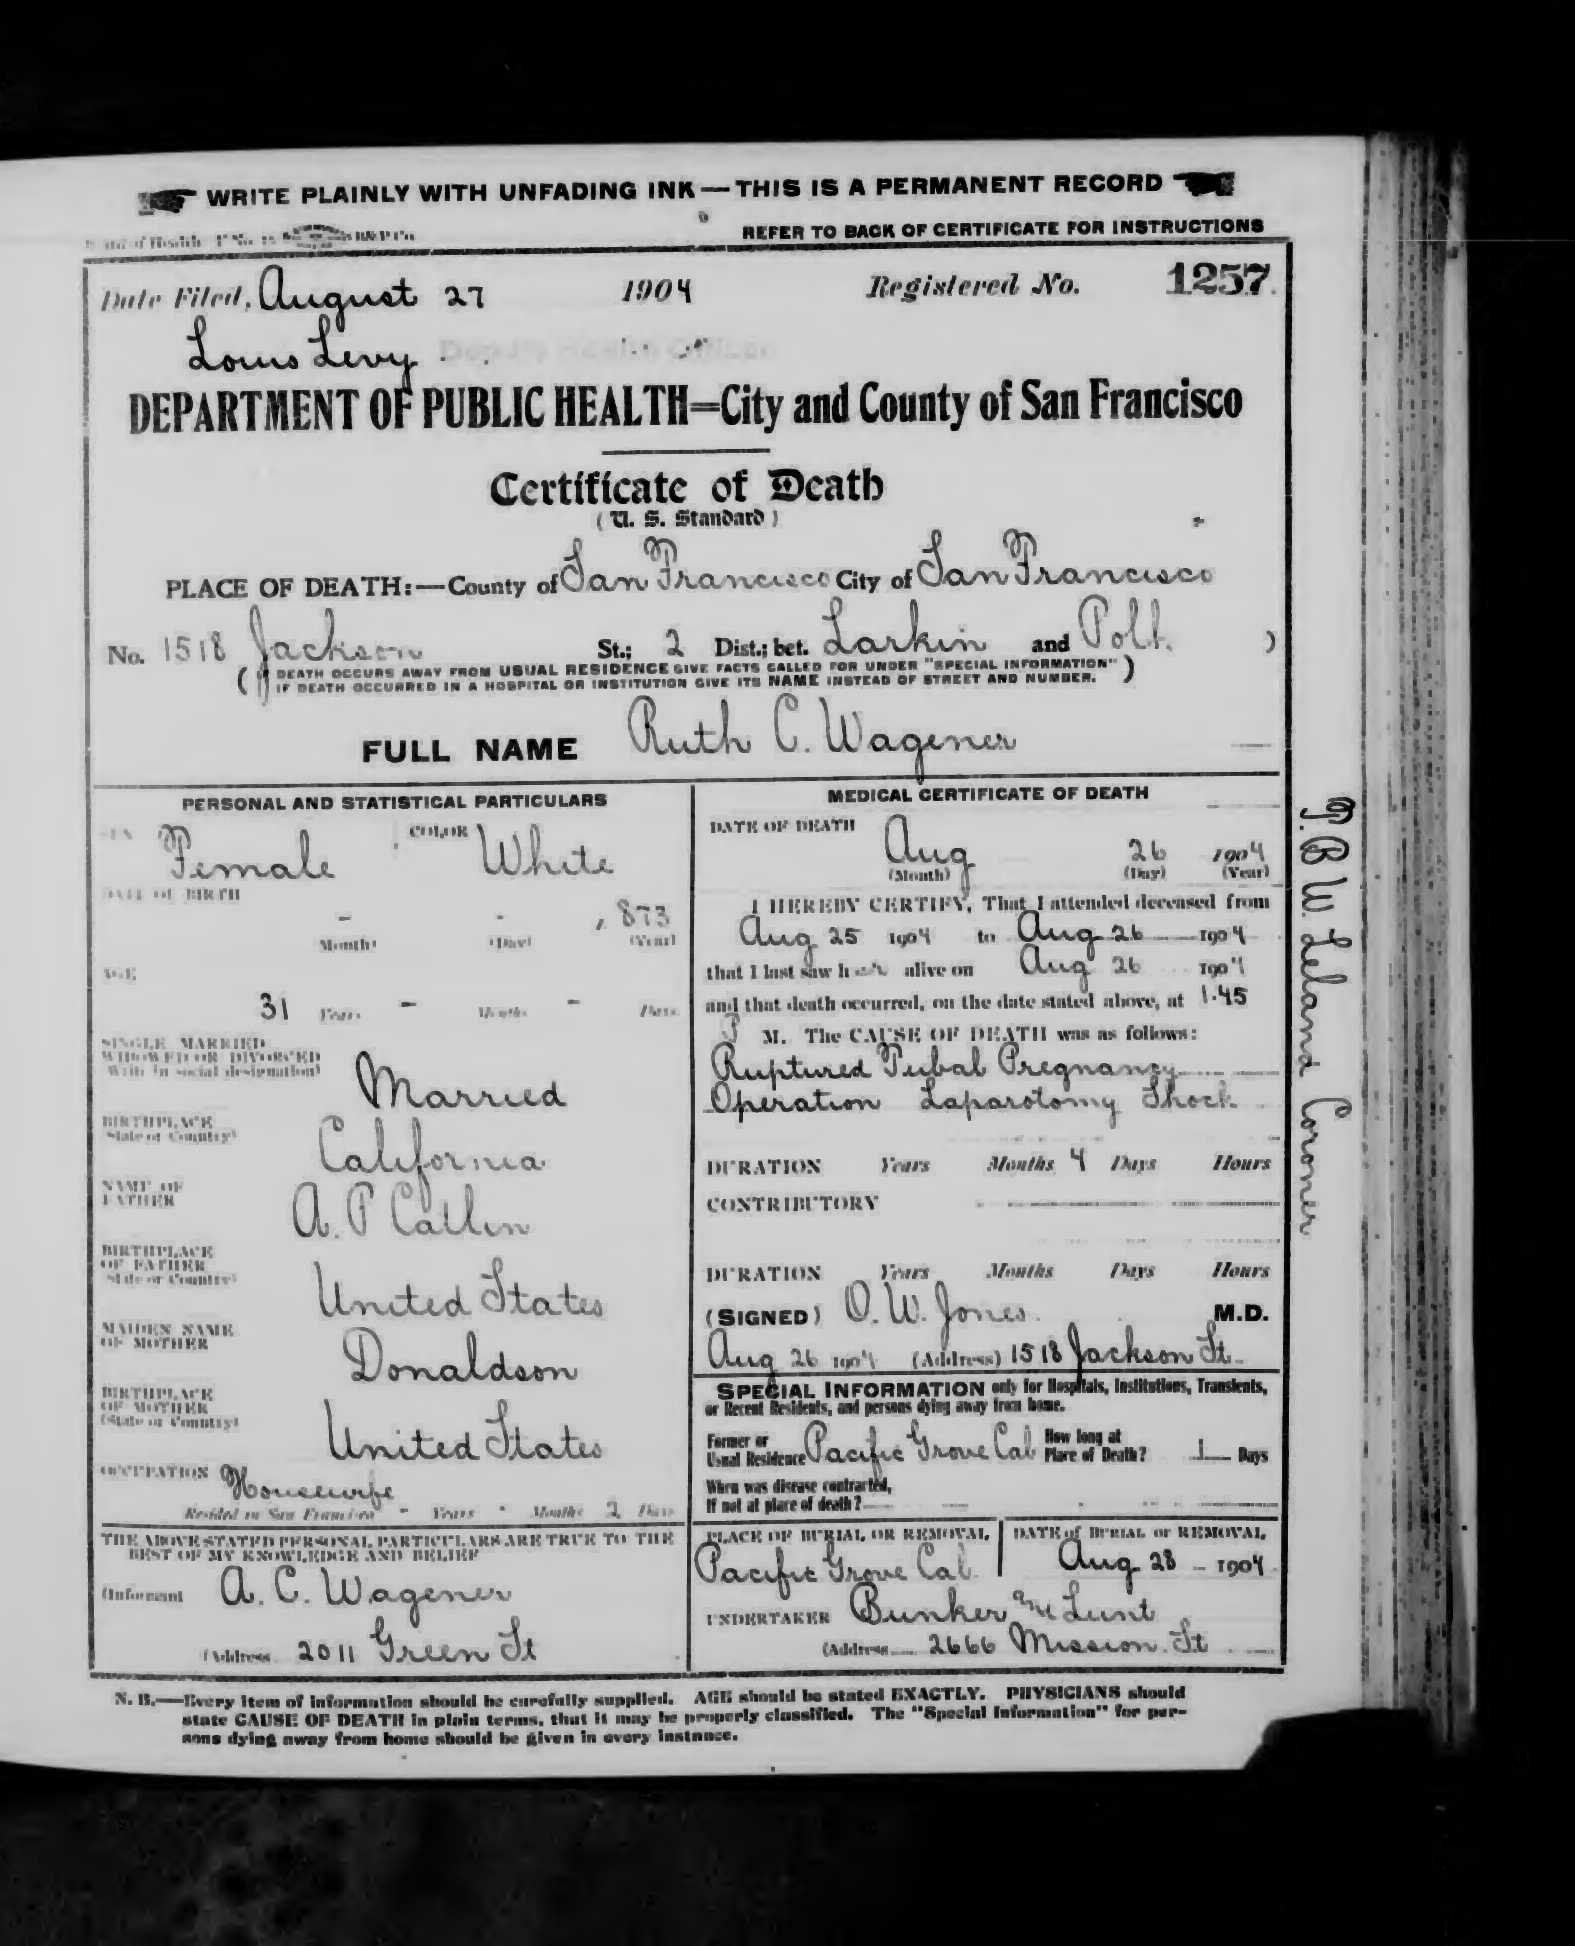 WRITE PLAINLY WITH UNFADING INK — THIS IS A PERMANENT RECORD
REFER TO BACK OF CERTIFICATE FOR INSTRUCTIONS
Date Filed, August 27 1904 Registered No. 1257
Louis Levy Deputy Health Officer
DEPARTMENT OF PUBLIC HEALTH=City and County of San Francisco
Certificate of Death
(U. S. Standard)
PLACE OF DEATH:—County of San Francisco City of San Francisco
No. 1518 Jackson St.; 2 Dist.; bet. Larkin and Polk )
( IF DEATH OCCURS AWAY FROM USUAL RESIDENCE GIVE FACTS CALLED FOR UNDER "SPECIAL INFORMATION" )
IF DEATH OCCURRED IN A HOSPITAL OR INSTITUTION GIVE ITS NAME INSTEAD OF STREET AND NUMBER.
FULL NAME Ruth C. Wagener
PERSONAL AND STATISTICAL PARTICULARS
SEX Female COLOR White
DATE OF BIRTH
- - 1873
(Month) (Day) (Year)
AGE
31 Years - Months - Days
SINGLE MARRIED
WIDOWED OR DIVORCED
(Write in social designation)
Married
BIRTHPLACE
(State or Country)
California
NAME OF
FATHER
A. P Catlin
BIRTHPLACE
OF FATHER
(State or Country)
United States
MAIDEN NAME
OF MOTHER
Donaldson
BIRTHPLACE
OF MOTHER
(State or Country)
United States
OCCUPATION Housewife
Resided in San Francisco - Years - Months 2 Days
THE ABOVE STATED PERSONAL PARTICULARS ARE TRUE TO THE
BEST OF MY KNOWLEDGE AND BELIEF
(Informant A. C. Wagener
(Address 2011 Green St
MEDICAL CERTIFICATE OF DEATH
DATE OF DEATH
Aug 26 1904
(Month) (Day) (Year)
I HEREBY CERTIFY, That I attended deceased from
Aug 25 1904 to Aug 26 1904
that I last saw her alive on Aug 26 1904
and that death occurred, on the date stated above, at 1.45
P M. The CAUSE OF DEATH was as follows:
Ruptured Tubal Pregnancy
Operation Laparotomy Shock
DURATION Years Months 4 Days Hours
CONTRIBUTORY
DURATION Years Months Days Hours
(SIGNED) O. W. Jones M.D.
Aug 26 1904 (Address) 1518 Jackson St.
SPECIAL INFORMATION only for Hospitals, Institutions, Transients,
or Recent Residents, and persons dying away from home.
Former or
Usual Residence Pacific Grove Cal
How long at
Place of Death? 1 Days
When was disease contracted,
If not at place of death?
PLACE OF BURIAL OR REMOVAL
Pacific Grove Cal
DATE of BURIAL or REMOVAL
Aug 28 1904
UNDERTAKER Bunker and Lunt
(Address 2666 Mission St
N. B.—Every item of information should be carefully supplied. AGE should be stated EXACTLY. PHYSICIANS should
state CAUSE OF DEATH in plain terms, that it may be properly classified. The "Special Information" for per-
sons dying away from home should be given in every instance.
T. B W. Leland Coroner